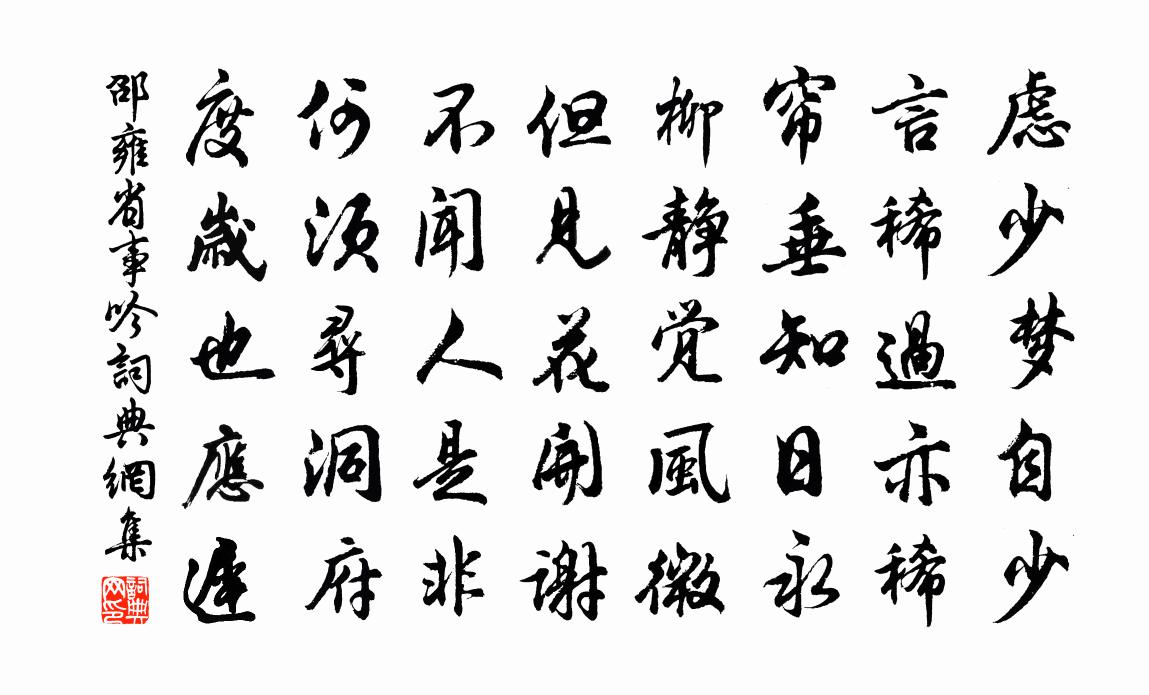 慮少梦自少
言稀過亦稀
帘垂知日永
柳静觉風微
但見花開謝
不聞人是非
何須尋洞府
度歲也應遲
邵雍省事吟詞典網集
詞典网印